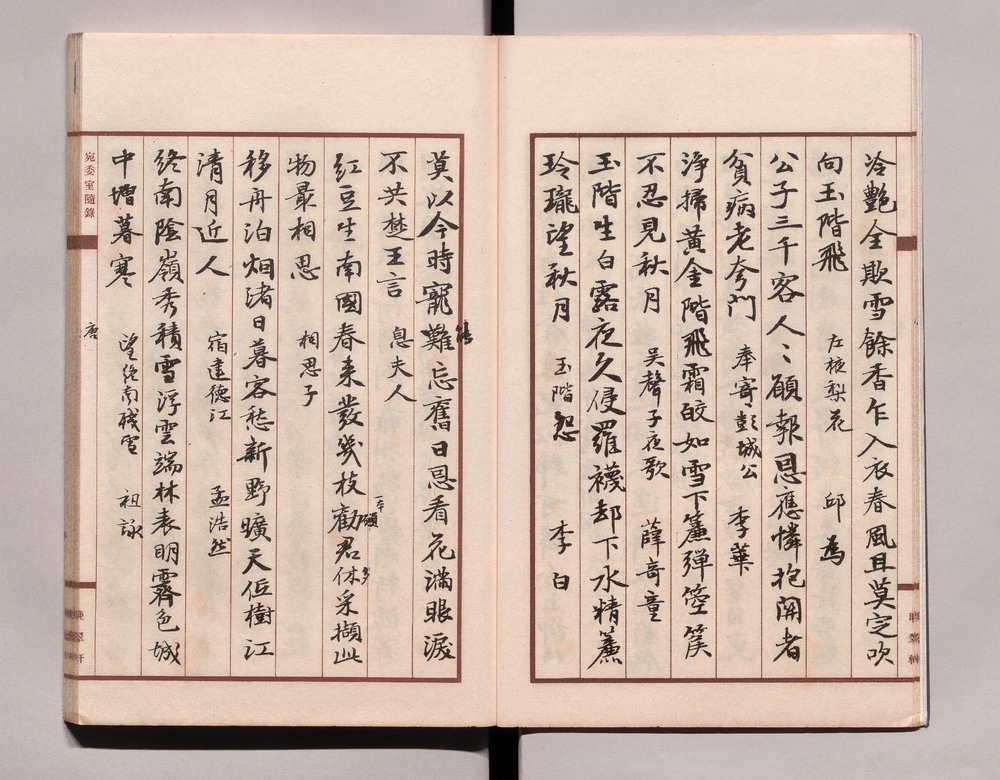 冷艷全欺雪餘香乍入衣春風且莫定吹
向玉階飛 左掖梨花 邱為
公子三千客人〻願報恩應憐抱關者
貧病老夷門 奉寄彭城公 李華
淨掃黃金階飛霜皎如雪下簾彈箜篌
不忍見秋月 吳聲子夜歌 薛奇童
玉階生白露夜久侵羅襪却下水精簾
玲瓏望秋月 玉階怨 李白
能
莫以今時寵難忘舊日恩看花滿眼淚
不共楚王言 息夫人
一本願 多
紅豆生南國春來發幾枝勸君休采擷此
物最相思 相思子
移舟泊烟渚日暮客愁新野曠天低樹江
清月近人 宿建德江 孟浩然
終南陰嶺秀積雪浮雲端林表明霽色城
中增暮寒 望終南殘雪 祖詠
宛委室隨錄
唐